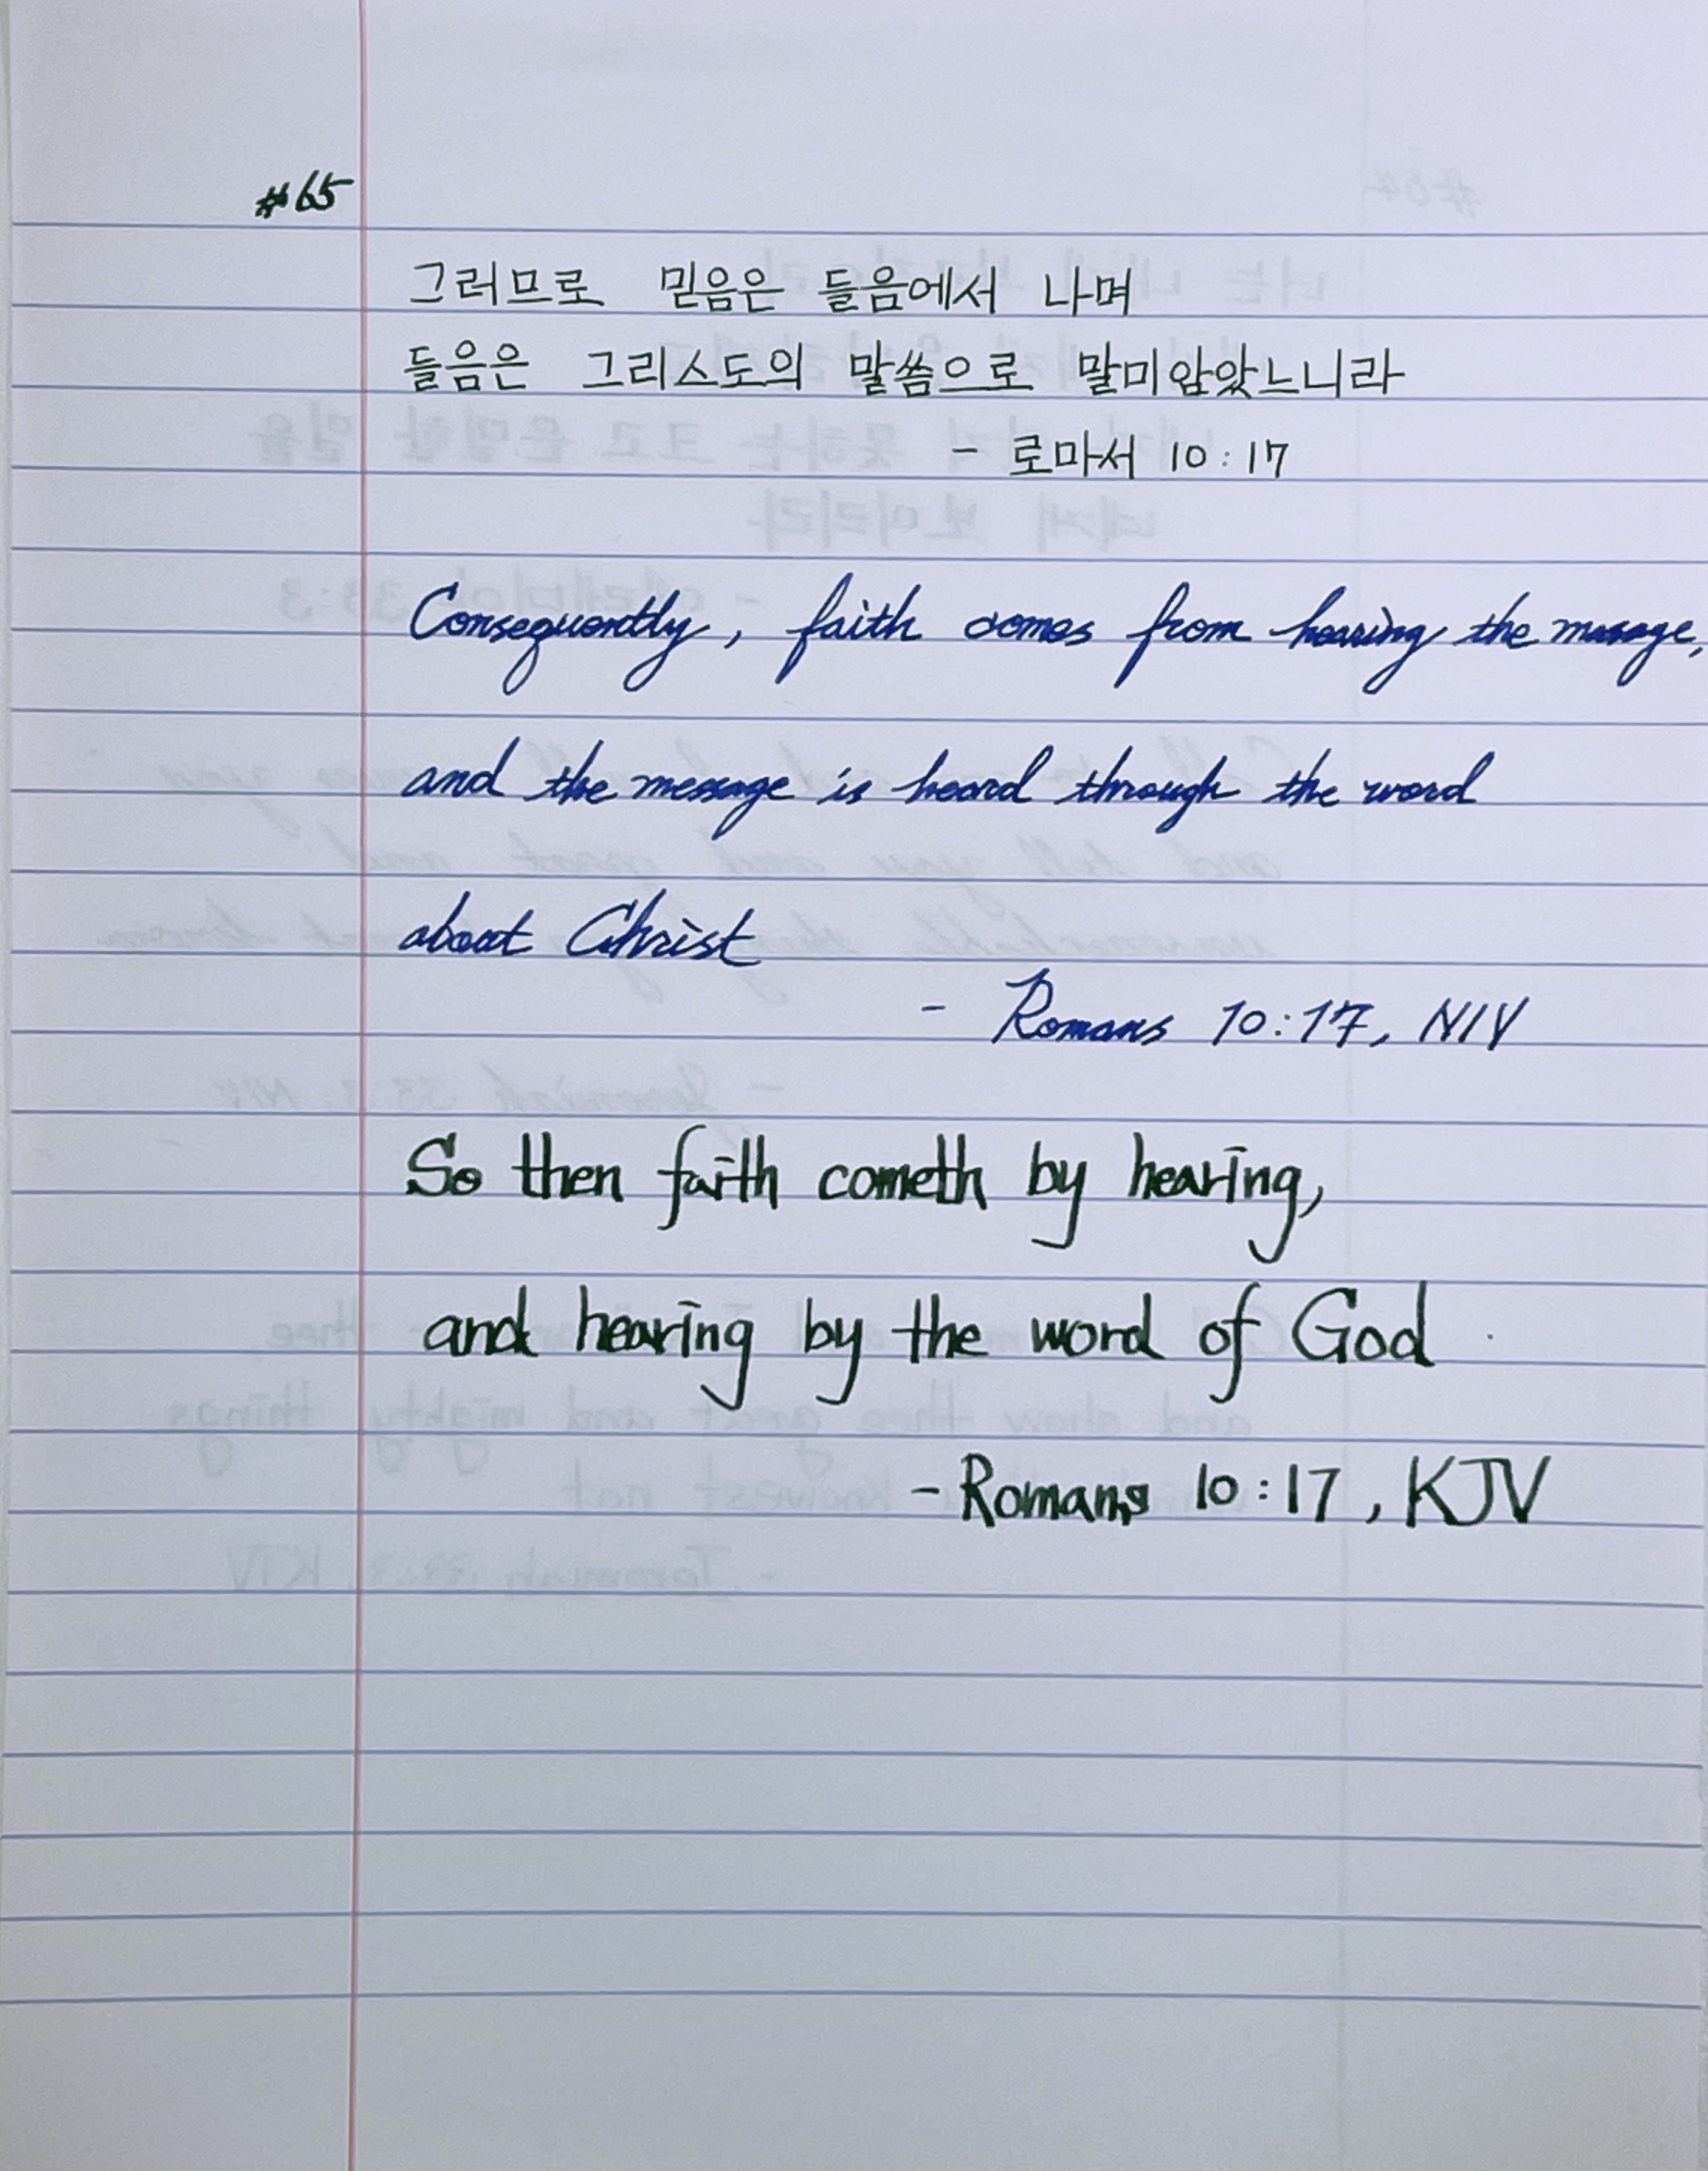 #65
그러므로 믿음은 들음에서 나며
들음은 그리스도의 말씀으로 말미암았느니라
- 로마서 10:17
Consequently, faith comes from hearing the message,
and the message is heard through the word
about Christ
- Romans 10:17, NIV
So then faith cometh by hearing,
and hearing by the word of God
- Romans 10:17, KJV